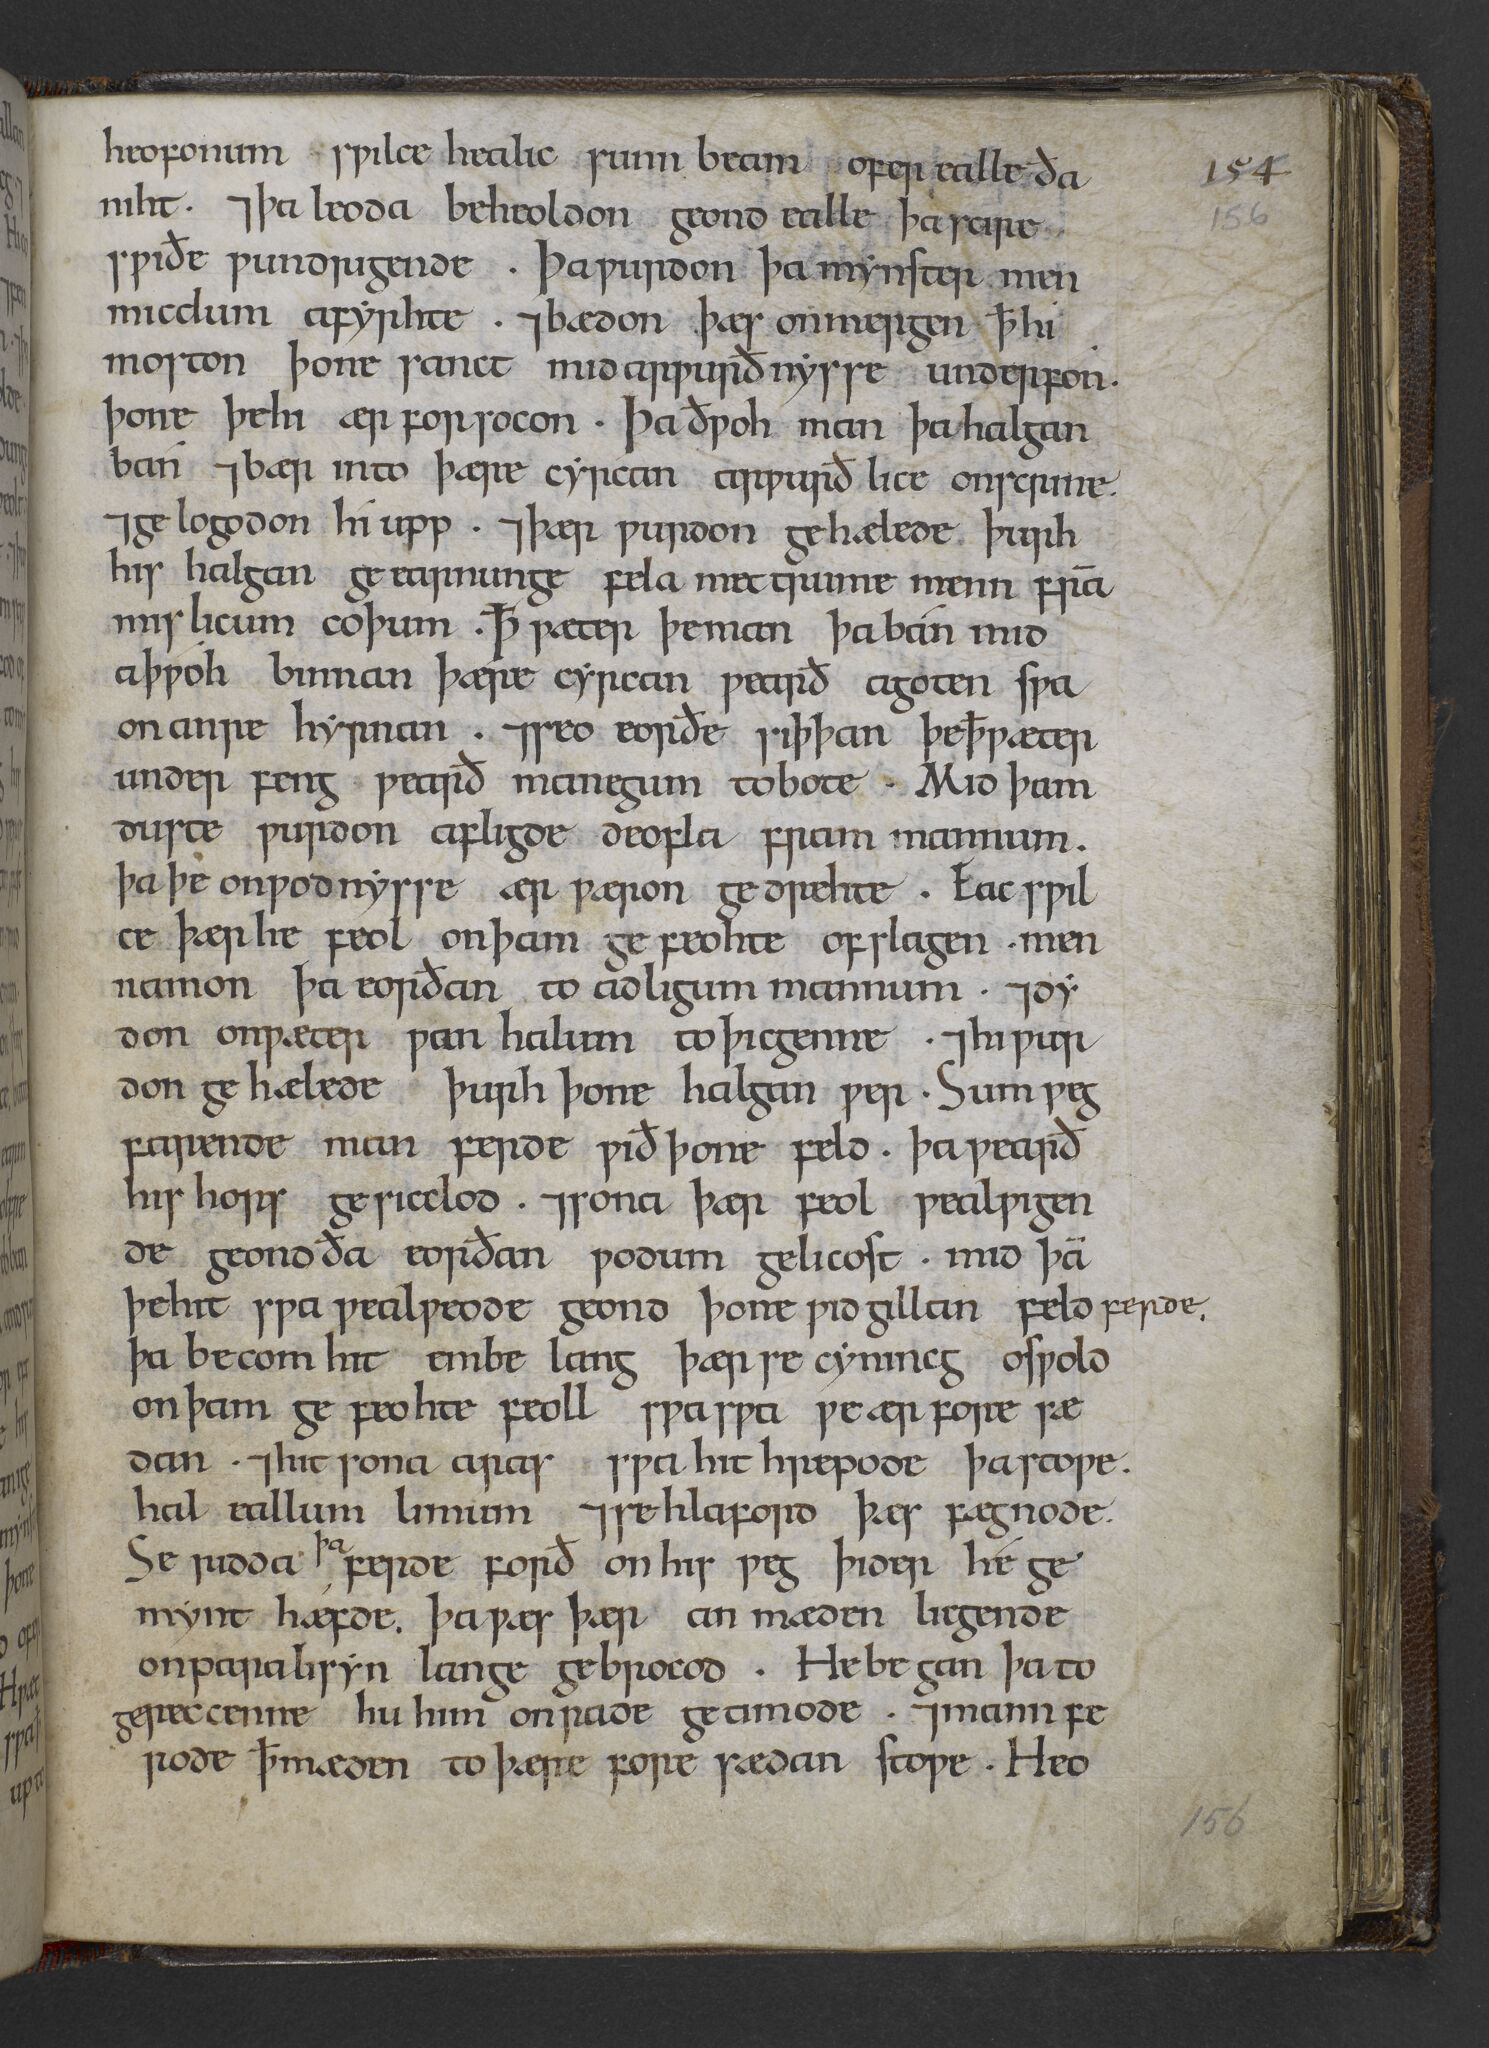 heofonum swilce healic sunn beam ofer ealle ða
154
niht. ⁊ þa leoda beheoldon geond ealle þa scire
156
swiðe wundrigende. Þa wurdon þa mynster men
micclum afyrhte. ⁊ bædon þæs on mergen ꝥ hi
moston þone sanct mid arwurðnysse underfon.
þone þe hi ær forsocon. Þa ðwoh man þa halgan
bán ⁊ bær into þære cyrcan arwurðlice on scrine.
⁊ ge logodon hí upp. ⁊ þær wurdon gehælede þurh
his halgan ge earnunge fela mettrume menn frā
mislicum coþum. Ꝥ wæter þe man þa bán mid
aþwóh binnan þære cyrcan wearð agoten swa
on anre hyrnan. ⁊ seo eorðe siþþan þe ꝥ wæter
under feng wearð manegum to bote. Mid þam
duste wurdon afligde deofla fram mannum.
þa þe on wodnysse ær wæron ge drehte. Eac swil
ce þær he feol on þam ge feohte ofslagen. men
namon þa eorðan to adligum mannum. ⁊ dy
don on wæter wan halum to þicgenne. ⁊ hi wur
don ge hælede þurh þone halgan wer. Sum weg
farende man ferde wið þone feld. þa wearð
his hors ge sicclod. ⁊ sona þær feol wealwigen
de geond ða eorðan wodum gelicost. mid þā
þe hit swa wealweode geond þone widgillan feld ferde.
þa becom hit embe lang þær se cynincg oswold
on þam ge feohte feoll swa swa we ær fore sæ
dan. ⁊ hit sona aras swa hit hrepode þa stowe.
hal eallum limum ⁊ se hlaford þæs fægnode.
Se ridda þa ferde forð on his weg þider hé ge
mynt hæfde. þa wæs þær an mæden licgende
on paralisyn lange gebrocod. He be gan þa to
gereccenne hu him on rade getimode. ⁊ mann fe
rode ꝥ mæden to þære fore sædan stowe. Heo
156